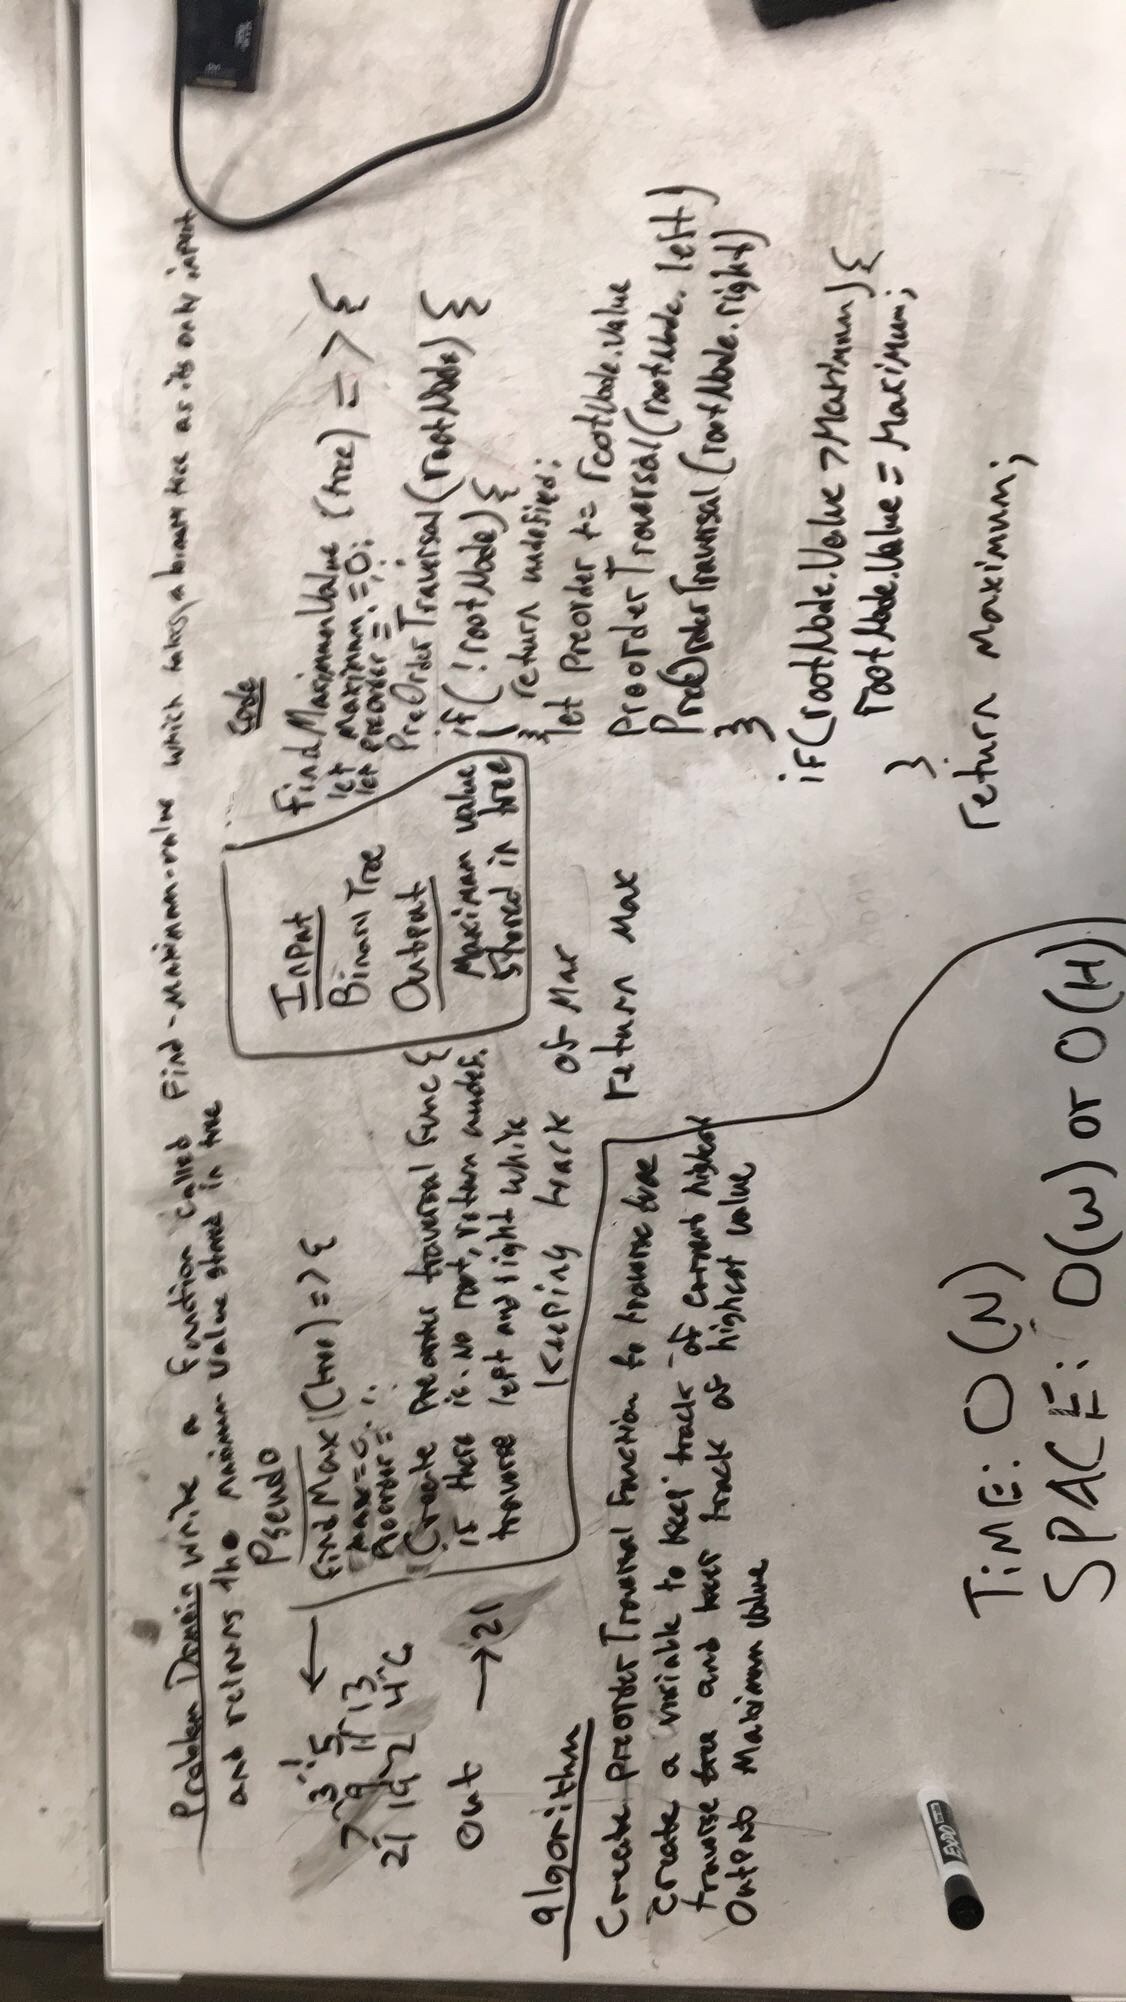 Problem Domain Write a function called find-maximum-value which takes a binary tree as its only input
and returns the maximum value stored in tree
Pseudo
findMax(tree) => {
max=0;
Preorder = '';
Create Preorder traversal func {
if there is no root, return undef.
traverse left and right while
keeping track of Max
return Max
1
3 5
7 9 11 13
21 19 2 4
out → 21
Input
Binary Tree
Output
Maximum value
stored in tree
Code
findMaximumValue (tree) => {
let maximum = 0;
let preorder = '';
PreOrderTraversal(rootNode) {
if(!rootNode) {
return undefined;
}
let Preorder += rootNode.value
PreorderTraversal(rootNode.left)
PreOrderTraversal(rootNode.right)
}
if(rootNode.Value > Maximum) {
rootNode.Value = Maximum;
}
return Maximum;
algorithm
Create preorderTraversal Function to traverse tree
Create a variable to keep track of current highest
traverse tree and keep track of highest value
Output Maximum value
TIME: O(N)
SPACE: O(W) or O(H)
EXPO